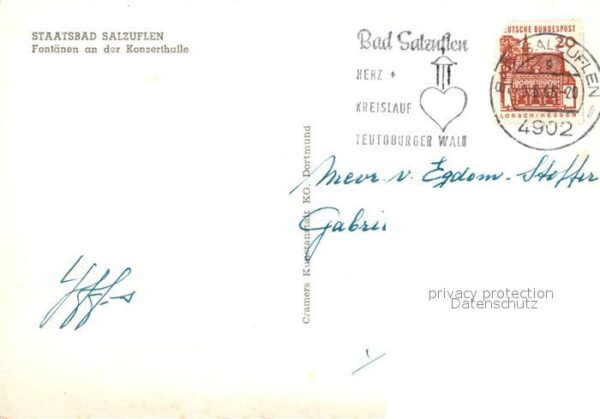 STAATSBAD SALZUFLEN
Fontänen an der Konzerthalle
Bad Salzuflen
HERZ +
KREISLAUF
TEUTOBURGER WALD
DEUTSCHE BUNDESPOST
20
LORSCH/HESSEN
SALZUFLEN
4902
Cramers Kunstanstalt KG, Dortmund
Mevr v. Egdom-Stoffer
Gabri
privacy protection
Datenschutz